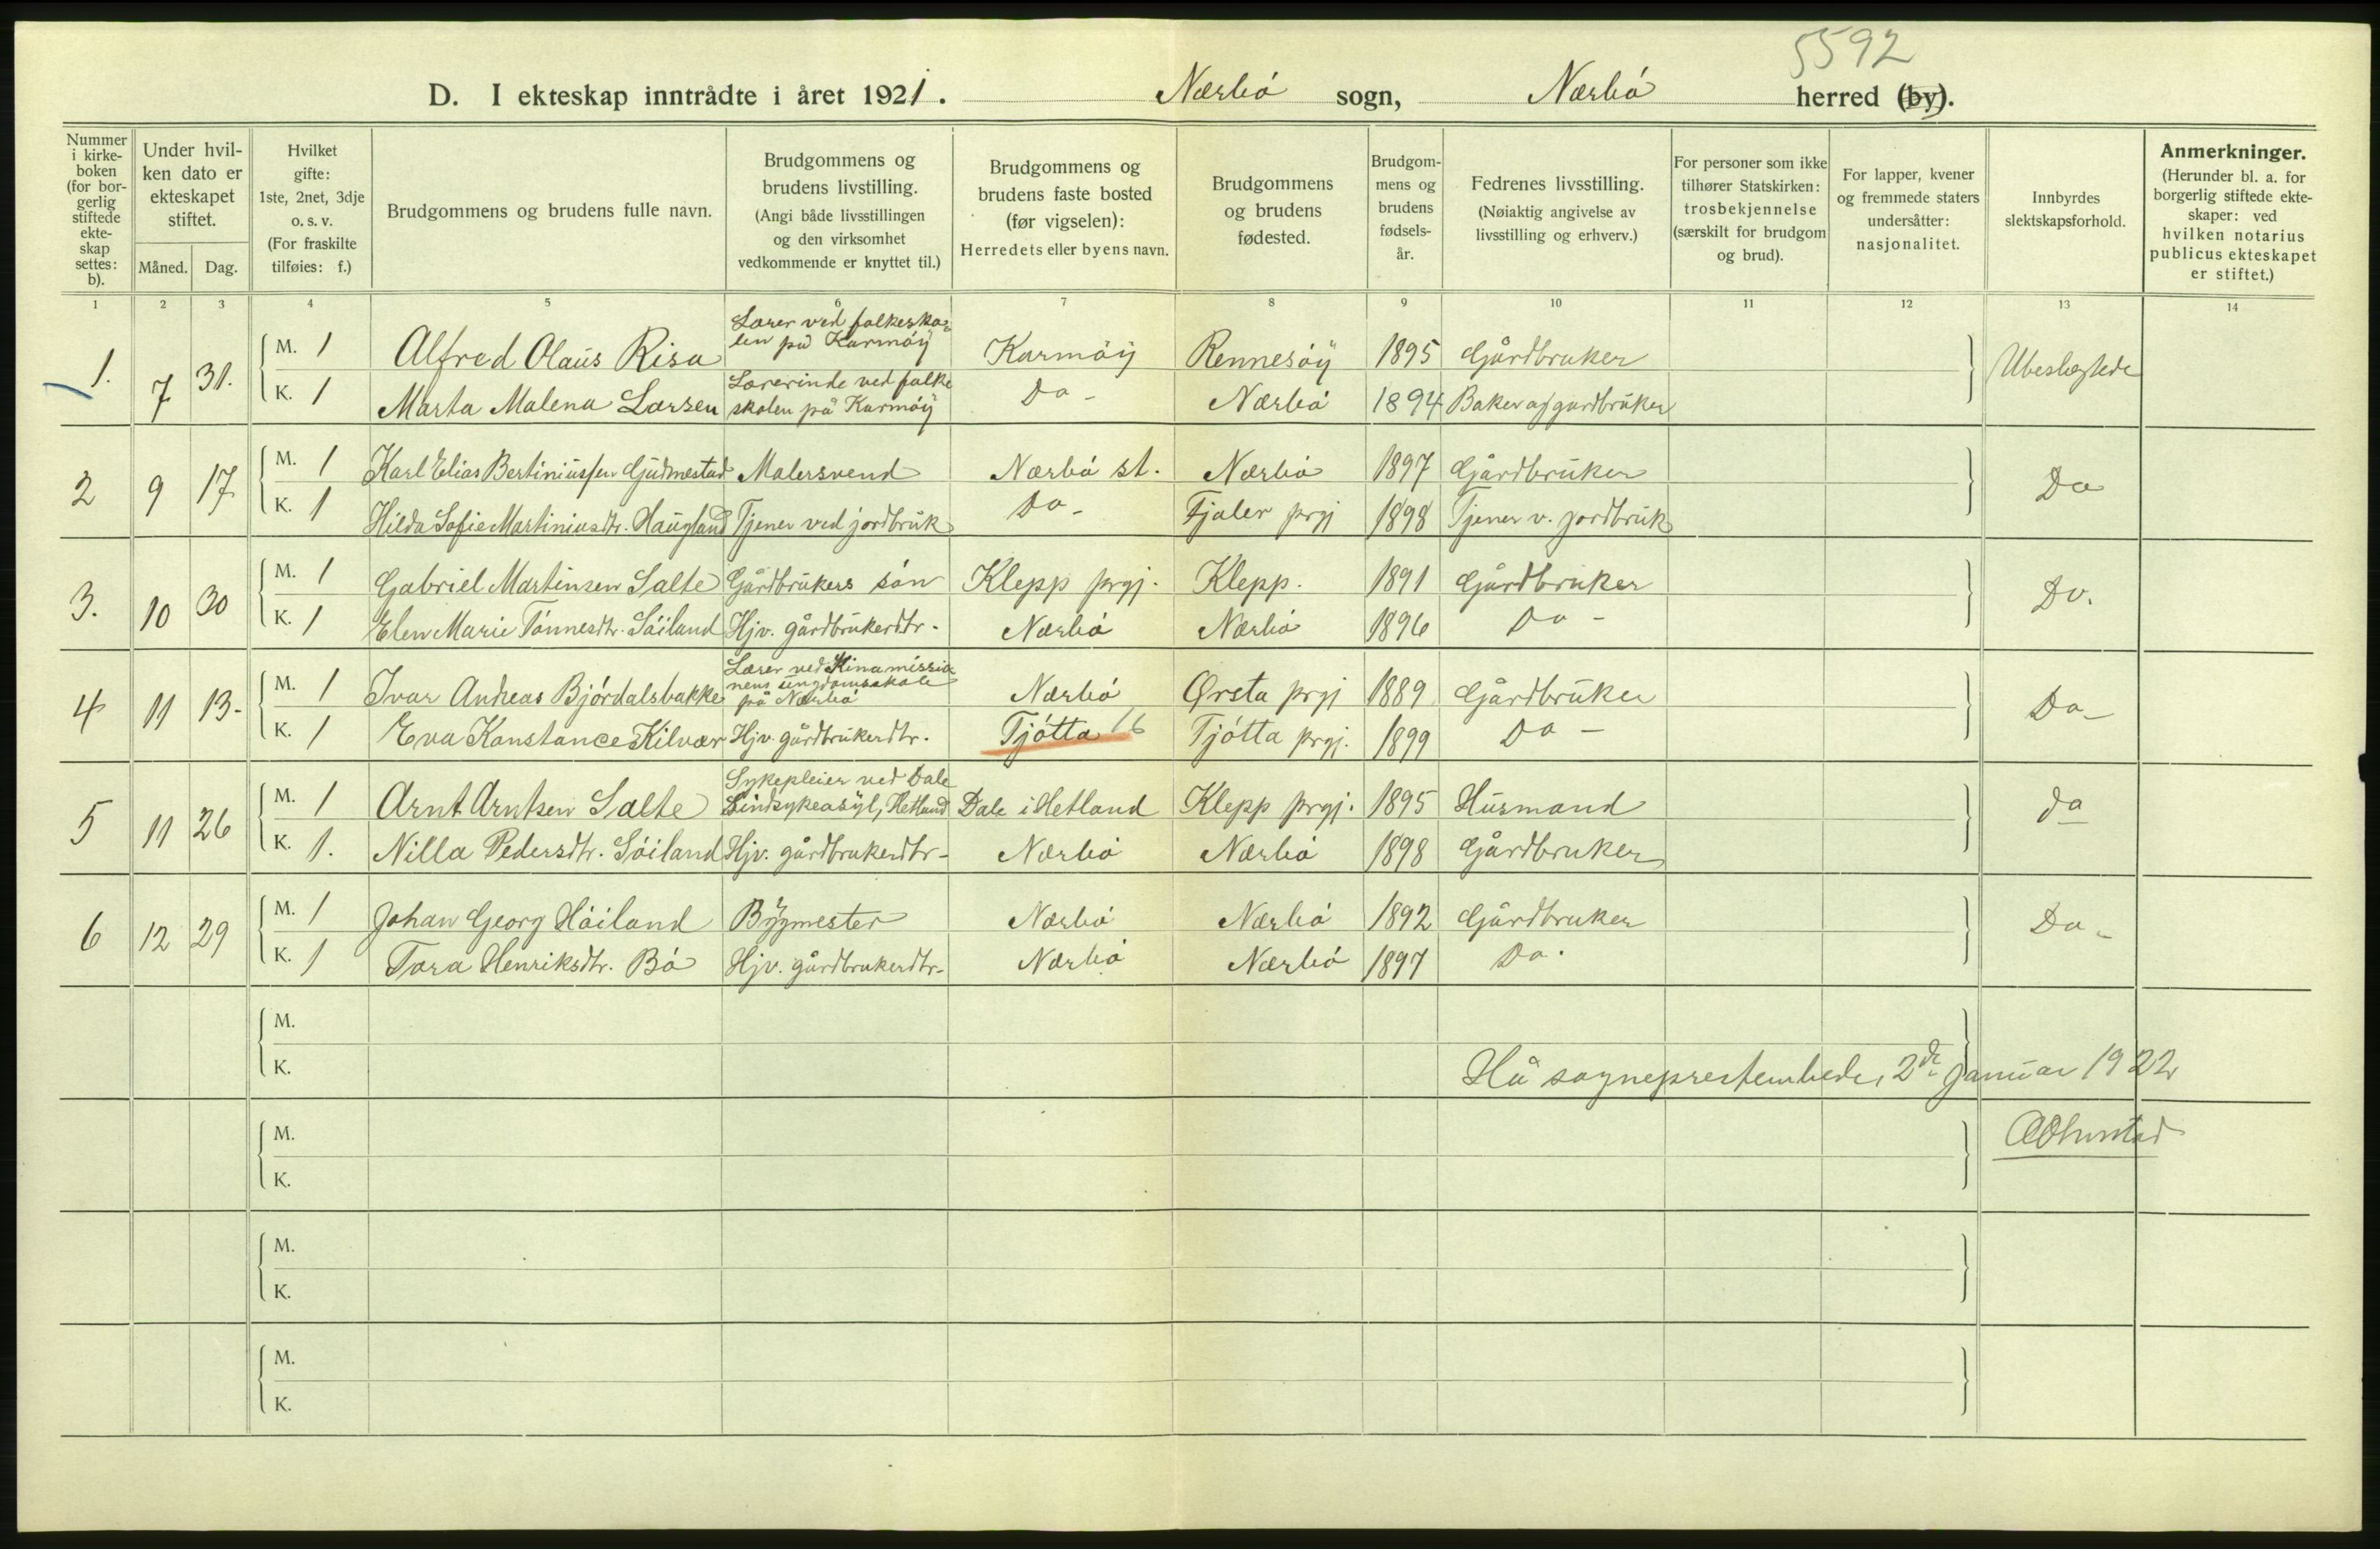 5592
D. I ekteskap inntrådte i året 1921. Nærbó sogn, Nærbó herred (by).
Nummer i kirkeboken (for borgerlig stiftede ekteskap settes: b).
Under hvilken dato er ekteskapet stiftet.
Måned. Dag.
Hvilket gifte: 1ste, 2net, 3dje o. s. v. (For fraskilte tilføies: f.)
Brudgommens og brudens fulle navn.
Brudgommens og brudens livstilling. (Angi både livsstillingen og den virksomhet vedkommende er knyttet til.)
Brudgommens og brudens faste bosted (før vigselen): Herredets eller byens navn.
Brudgommens og brudens fødested.
Brudgommens og brudens fødselsår.
Fedrenes livsstilling. (Nøiaktig angivelse av livsstilling og erhverv.)
For personer som ikke tilhører Statskirken: trosbekjennelse (særskilt for brudgom og brud).
For lapper, kvener og fremmede staters undersåtter: nasjonalitet.
Innbyrdes slektskapsforhold.
Anmerkninger. (Herunder bl. a. for borgerlig stiftede ekteskaper: ved hvilken notarius publicus ekteskapet er stiftet.)
1 2 3 4 5 6 7 8 9 10 11 12 13 14
1. 7 31. M. 1 Alfred Olaus Risa Lærer ved folkeskolen på Karmöy Karmöy Rennesöy 1895 Gårdbruker Ubeslegtede
K. 1 Marta Malena Larsen Lærerinde ved folkeskolen på Karmöy Do - Nærbó 1894 Baker og gardbruker
2 9 17 M. 1 Karl Elias Bertiniussen Gudmestad Malersvend Nærbó st. Nærbó 1897 Gårdbruker Do
K. 1 Hilda Sofie Martiniusdtr. Haugland Tjener ved jordbruk Do - Fjaler prgj 1898 Tjener v. jordbruk
3. 10 30 M. 1 Gabriel Martinsen Salte Gårdbrukers són Klepp prgj. Klepp. 1891 Gårdbruker Do.
K. 1 Elen Marie Tónnesdtr. Sóiland Hjv. gårdbrukerdtr. Nærbó Nærbó 1896 Do -
4 11 13- M. 1 Ivar Andreas Bjórdalsbakke Lærer ved Kinamissionens ungdomsskole på Nærbó Nærbó Ørsta prgj 1889 Gårdbruker Do -
K. 1 Eva Konstance Kilvær Hjv. gårdbrukerdtr. Tjótta 16 Tjótta prgj. 1899 Do -
5 11 26 M. 1 Arnt Arntsen Salte Sykepleier ved Dale Sindsykeasyl, Hetland Dale i Hetland Klepp prgj. 1895 Husmand do
K. 1. Nilla Pedersdtr. Sóiland Hjv. gårdbrukerdtr- Nærbó Nærbó 1898 Gårdbruker
6 12 29 M. 1 Johan Georg Hóiland Bygmester Nærbó Nærbó 1892 Gårdbruker Do -
K. 1 Tora Henriksdtr. Bó Hjv. gårdbrukerdtr- Nærbó Nærbó 1897 Do.
M.
K. Hå sogneprestembede, 2de Januar 1922
M.
K.
M.
K.
M.
K.